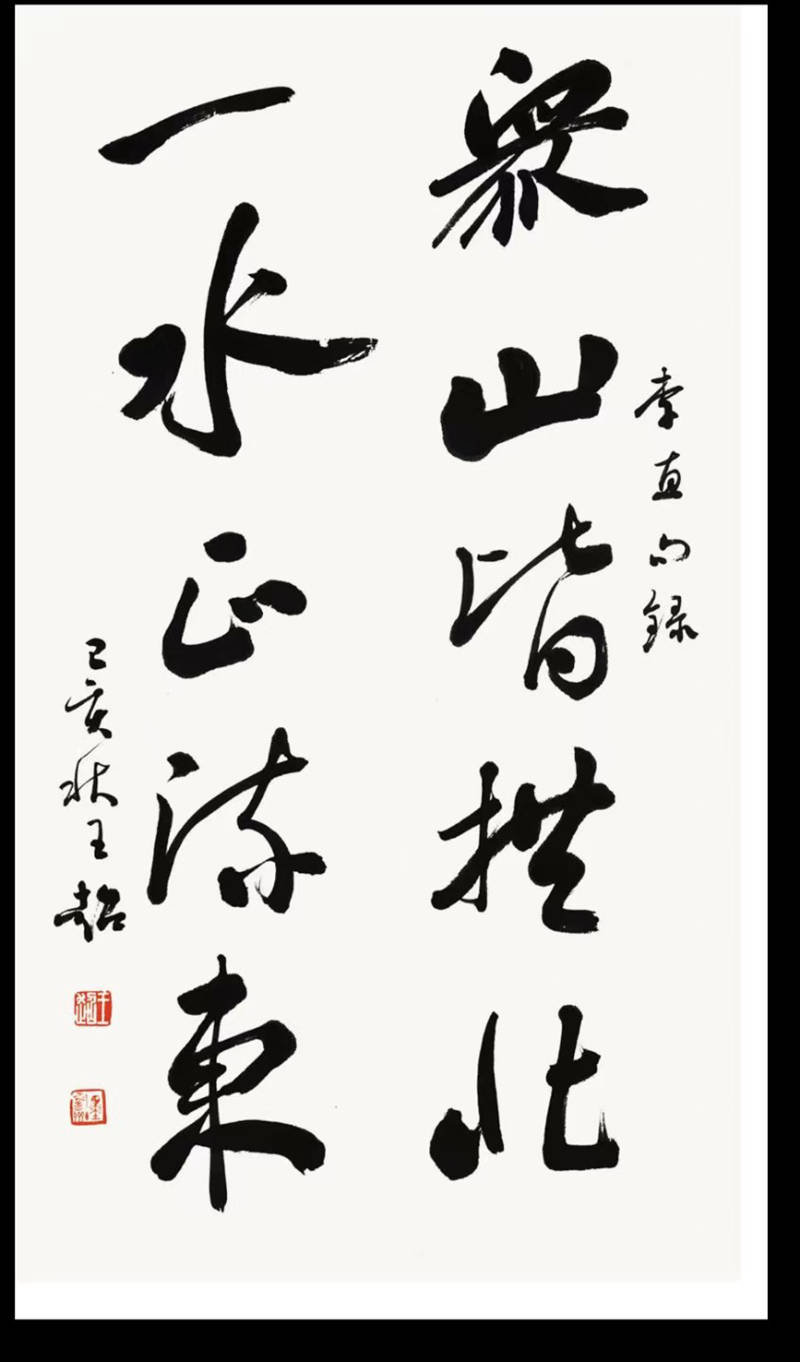 李直句録
眾山皆拱北
一水正流東
己亥秋王超
王超